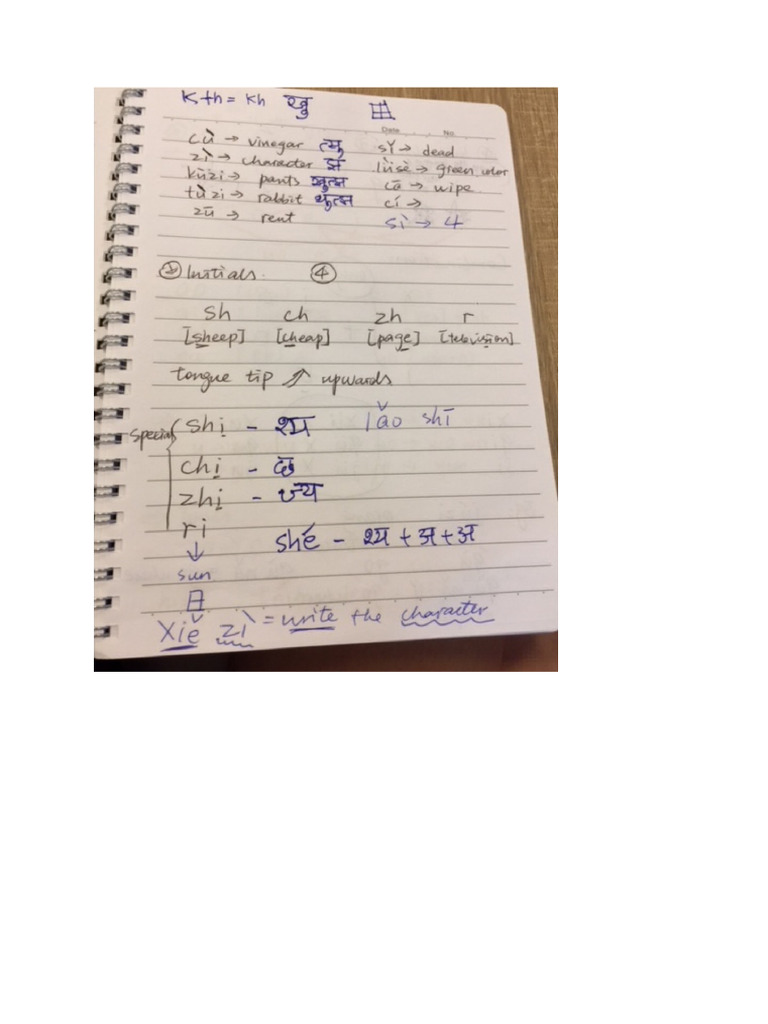 K+h = kh खु
Date No.
cù → vinegar त्सु sǐ → dead
zì → character lǜsè → green color
kùzi → pants cā → wipe
tùzi → rabbit cí →
zū → rent sì → 4
② Initials. ④
sh ch zh r
[sheep] [cheap] [page] [television]
tongue tip ↗ upwards
special { shi - श्य lǎo shī
chi - छ
zhi - ज्य
ri
↓ shé - श्य + अ + अ
sun
日
Xiě zì = write the character